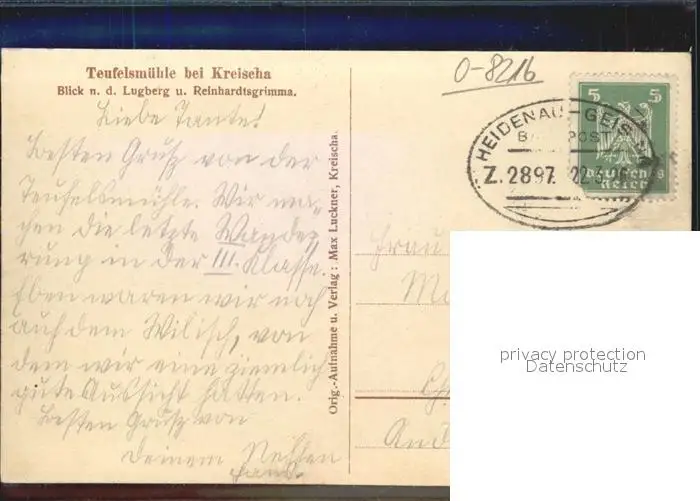 Teufelsmühle bei Kreischa
Blick n. d. Lugberg u. Reinhardtsgrimma.
Liebe Tante!
Besten Gruß von der
Teufelsmühle. Wir ma-
chen die letzte Wande-
rung in der III. Klasse.
Eben waren wir noch
auf dem Wilisch, von
dem wir eine ziemlich
gute Aussicht hatten.
Besten Gruß von
deinem Neffen
Hans.
Orig.-Aufnahme u. Verlag: Max Luckner, Kreischa.
O-8216
HEIDENAU-GEIS
BAHNPOST
Z. 2897. 22
5 5
Deutsches
Reich
Frau
privacy protection
Datenschutz